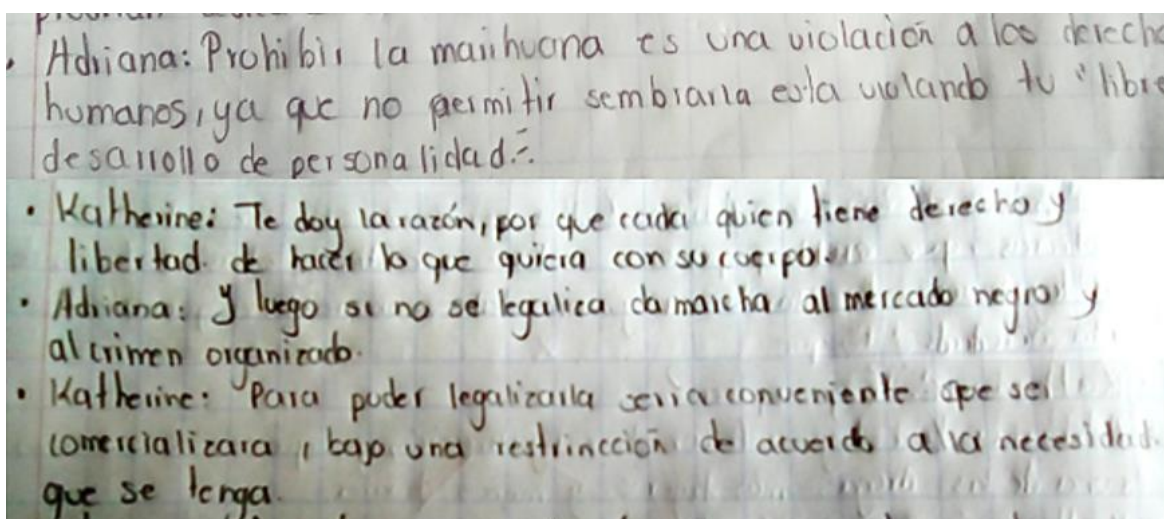 • Adriana: Prohibir la maiihuana es una violación a los derecho
humanos, ya que no permitir sembrarla esta violando tu "libre
desarrollo de personalidad".
• Katherine: Te doy la razón, por que cada quien tiene derecho y
libertad de hacer lo que quicra con su cuerpo.
• Adriana: Y luego si no se legalica da marcha al mercado negro y
al crimen organizado.
• Katherine: Para poder legalizarla seria conveniente que se
comercializara, bajo una restrincción de acuerdo a la necesidad
que se tenga.